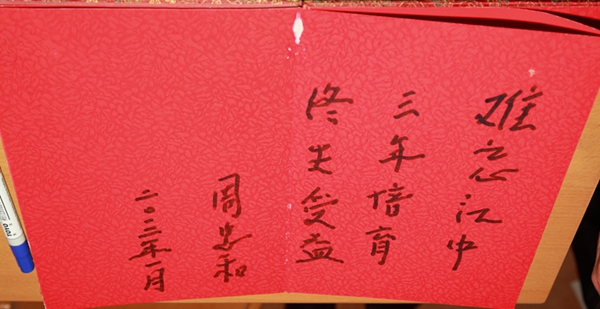 难忘江中
三年培育
终生受益
周忠和
二〇一二年一月